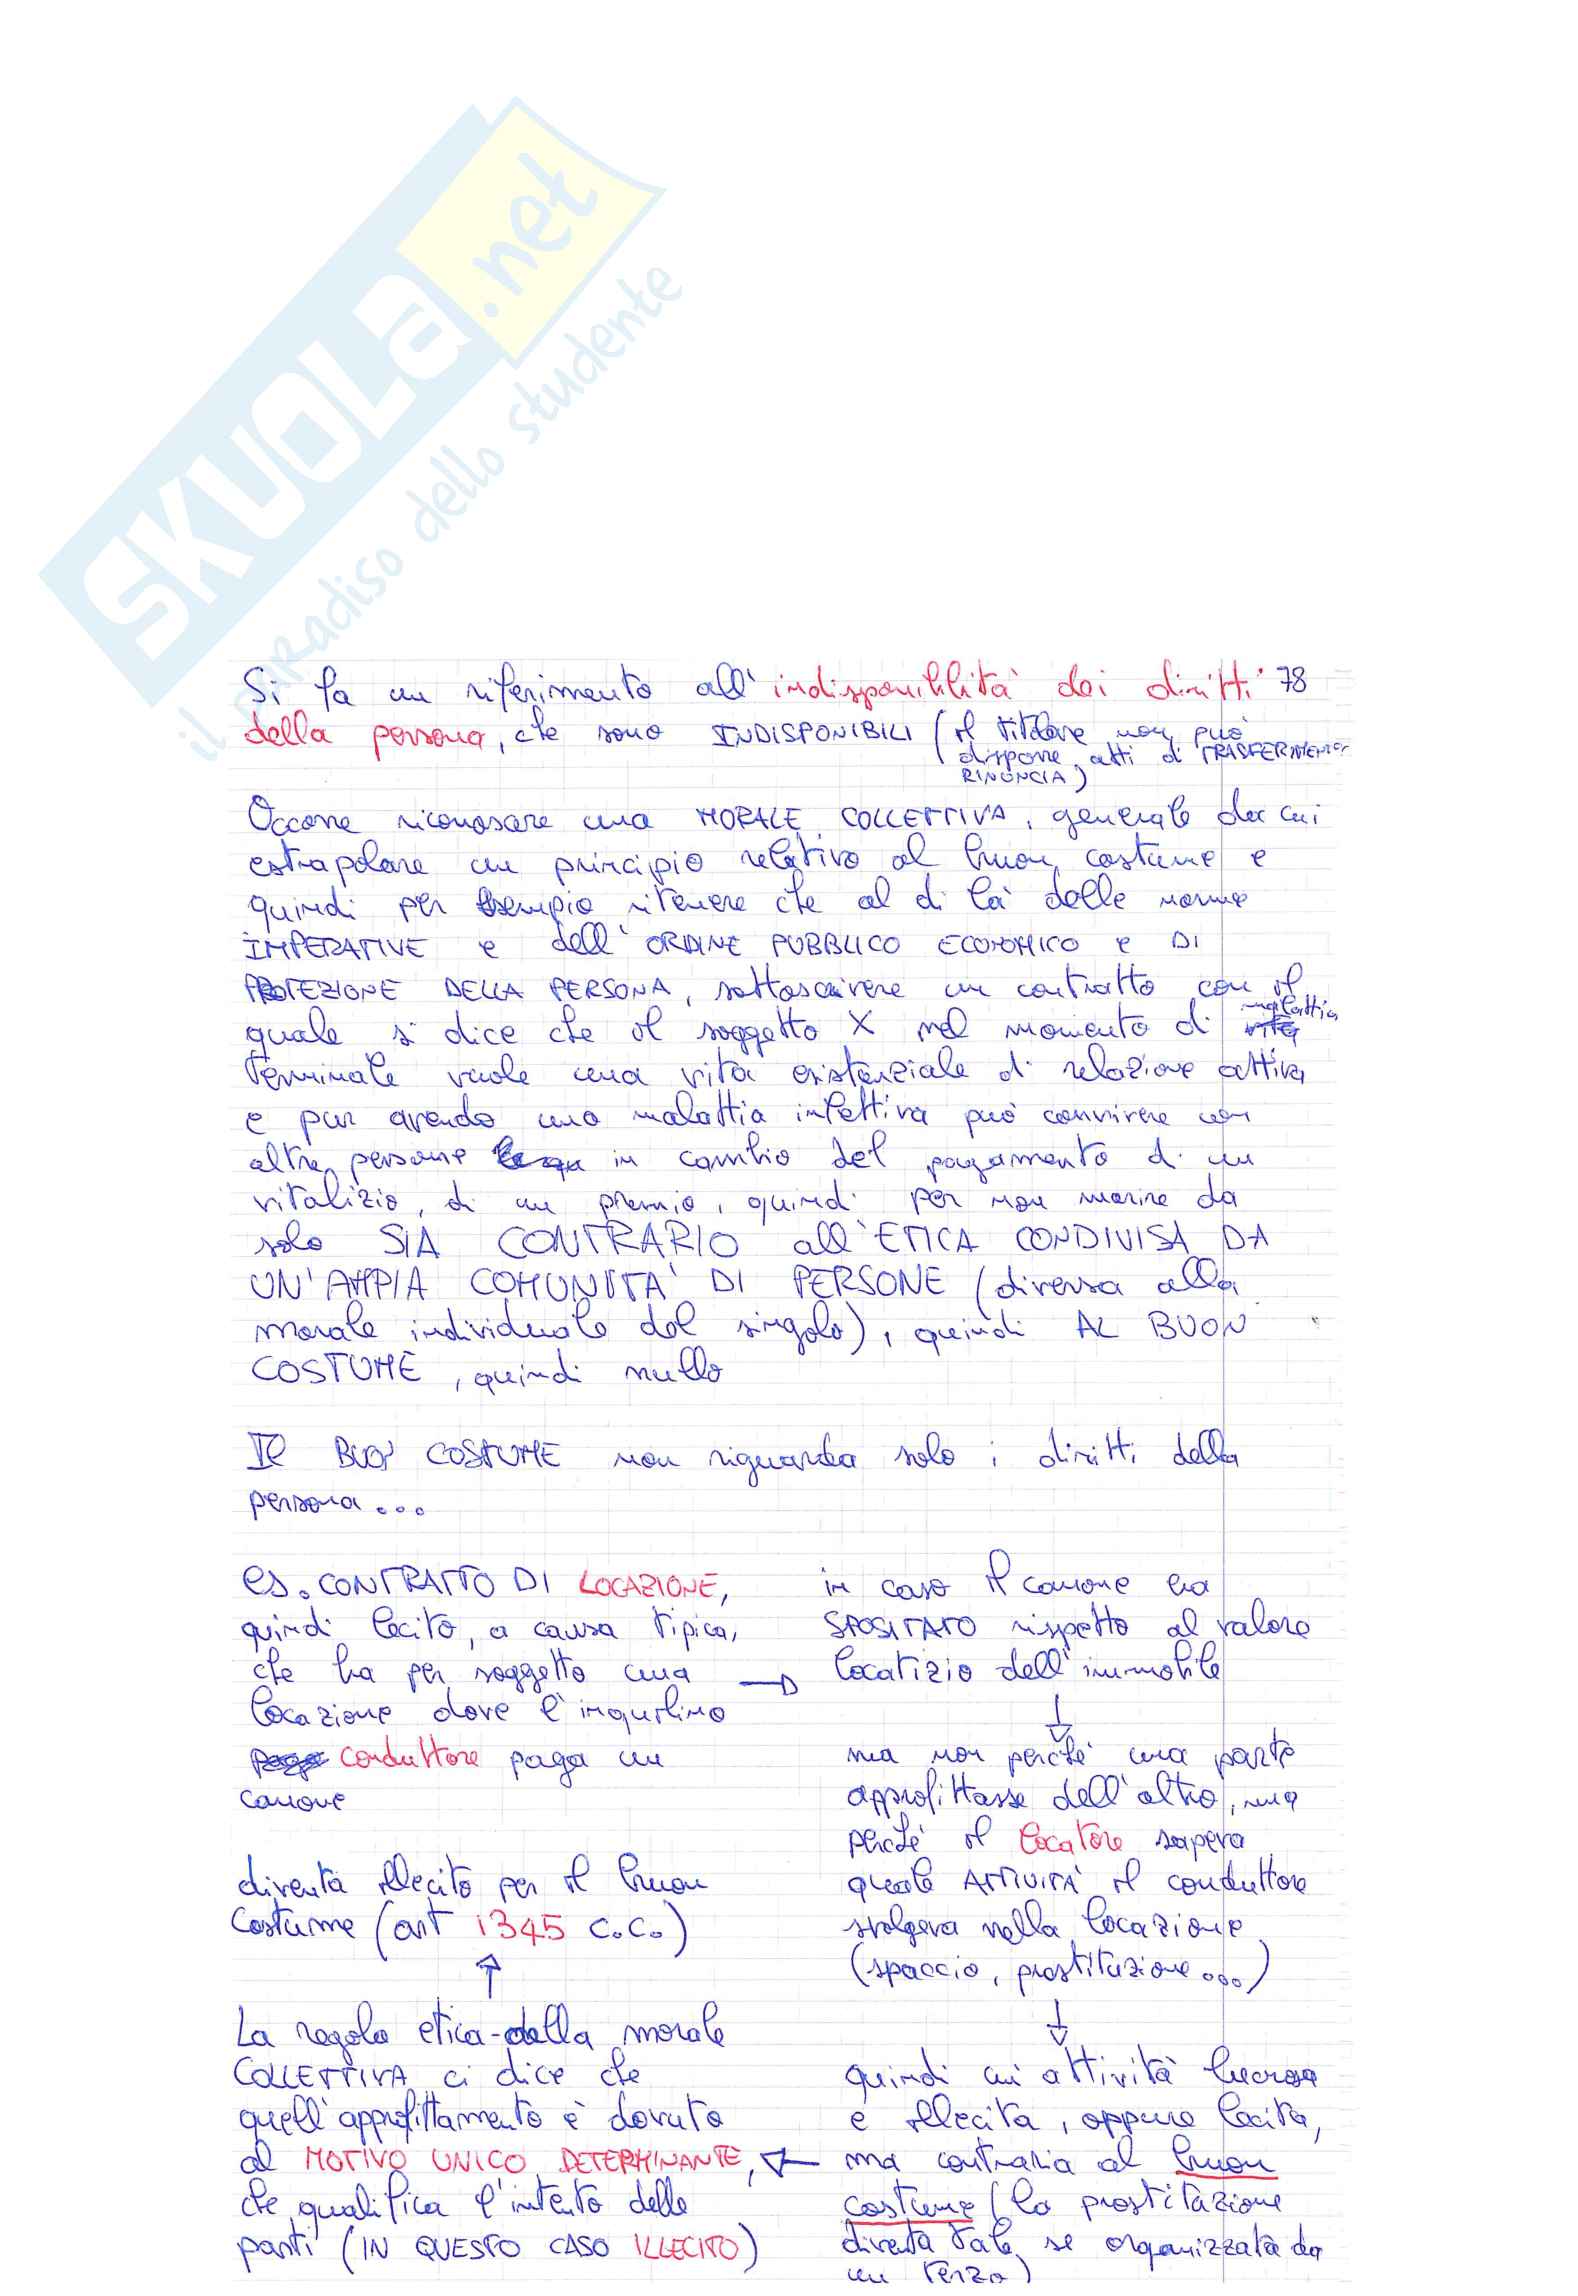 SKUOLA.net
il paradiso dello studente
Si fa un riferimento all'indisponibilità dei diritti 78
della persona, che sono INDISPONIBILI (il titolare non può
disporre, atti di TRASFERIMENTO,
RINUNCIA)
Occorre riconoscere una MORALE COLLETTIVA, generale da cui
estrapolare un principio relativo al buon costume e
quindi per esempio ritenere che al di là delle norme
IMPERATIVE e dell'ORDINE PUBBLICO ECONOMICO e DI
PROTEZIONE DELLA PERSONA, sottoscrivere un contratto con il
quale si dice che il soggetto X nel momento di malattia
terminale vuole una vita esistenziale di relazione attiva
e pur avendo una malattia infettiva può convivere con
altre persone in cambio del pagamento di un
vitalizio, di un premio, quindi per non morire da
solo SIA CONTRARIO all'ETICA CONDIVISA DA
UN'AMPIA COMUNITA' DI PERSONE (diversa alla
morale individuale del singolo), quindi AL BUON
COSTUME, quindi nullo
Il BUON COSTUME non riguarda solo i diritti della
persona...
es. CONTRATTO DI LOCAZIONE,
quindi lecito, a causa tipica,
che ha per soggetto una
locazione dove l'inquilino
conduttore paga un
canone
in caso il canone era
SPOSITATO rispetto al valore
locatizio dell'immobile
ma non perché una parte
approfittasse dell'altro, ma
perché il locatore sapeva
quale ATTIVITÀ il conduttore
svolgeva nella locazione
(spaccio, prostituzione...)
quindi un'attività lucrosa
e illecita, oppure lecita,
ma contraria al buon
costume (la prostituzione
diventa tale se organizzata da
un terzo)
La regola etica della morale
COLLETTIVA ci dice che
quell'approfittamento è dovuto
al MOTIVO UNICO DETERMINANTE,
che qualifica l'intento delle
parti (IN QUESTO CASO ILLECITO)
diventa illecito per il buon
costume (art 1345 c.c.)